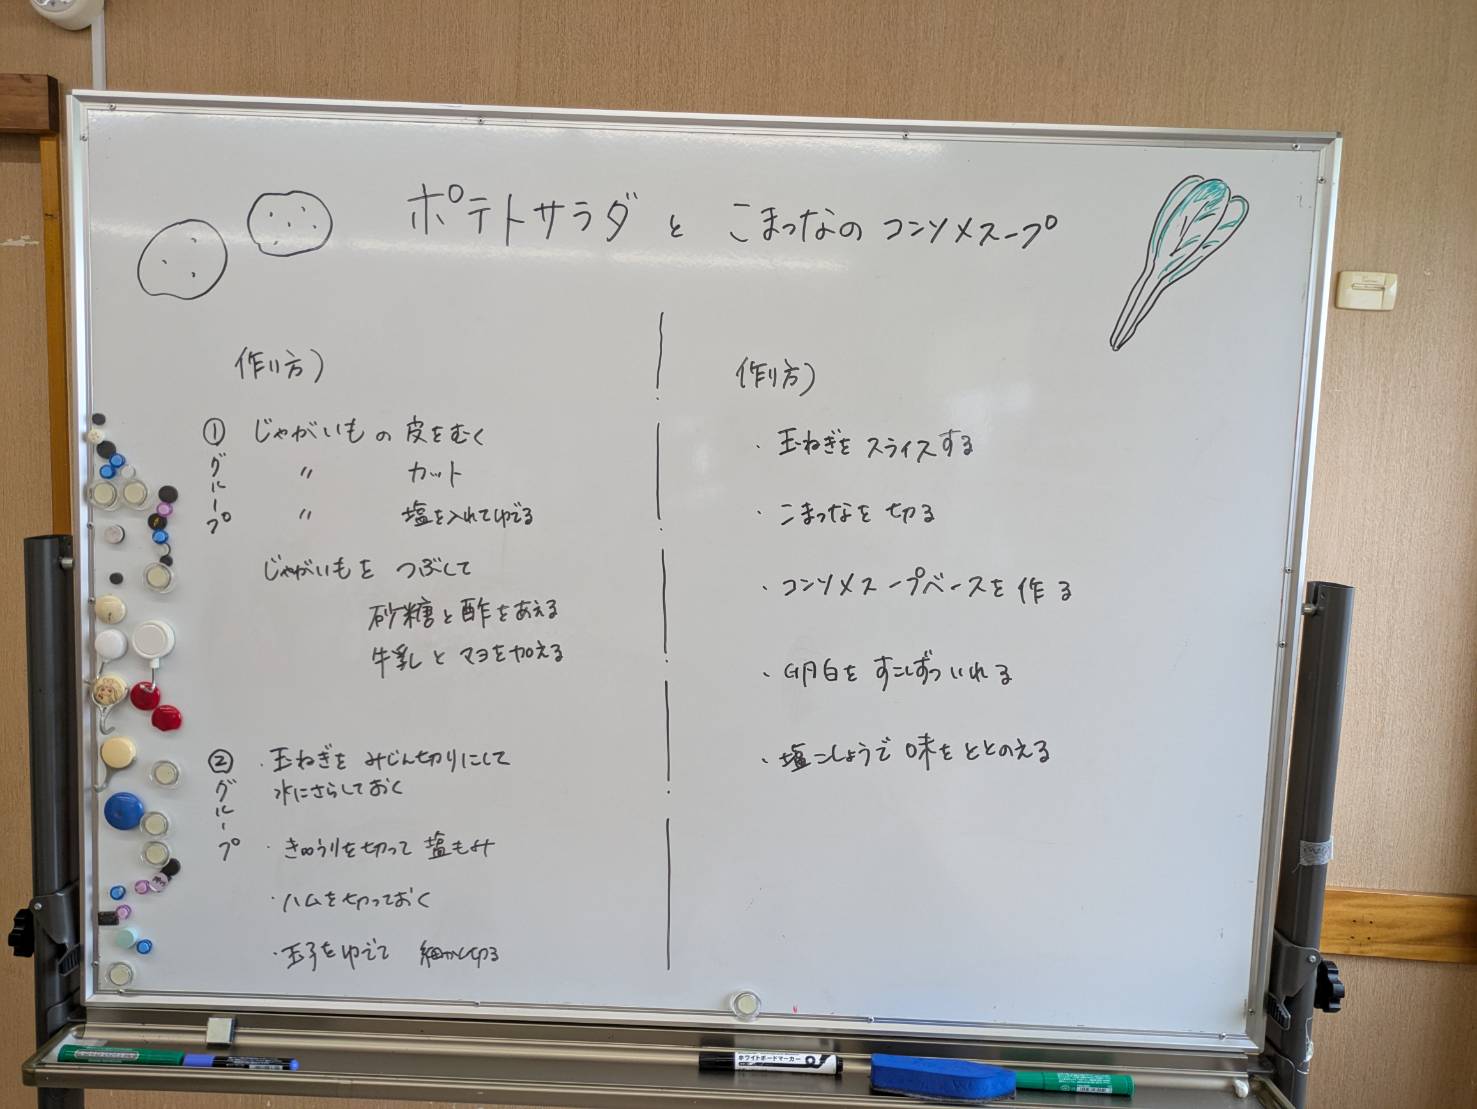 ポテトサラダ と こまつなの コンソメスープ
作り方)
① じゃがいもの 皮をむく
グループ
〃 カット
〃 塩を入れてゆでる
じゃがいもを つぶして
砂糖と酢をあえる
牛乳と マヨを加える
② ・玉ねぎを みじん切りにして
グループ
水にさらしておく
・きゅうりを切って 塩もみ
・ハムを切っておく
・玉子をゆでて 細かく切る
作り方)
・玉ねぎを スライスする
・こまつなを 切る
・コンソメスープベースを 作る
・卵白を すこしずついれる
・塩こしょうで 味を ととのえる
ホワイトボードマーカー